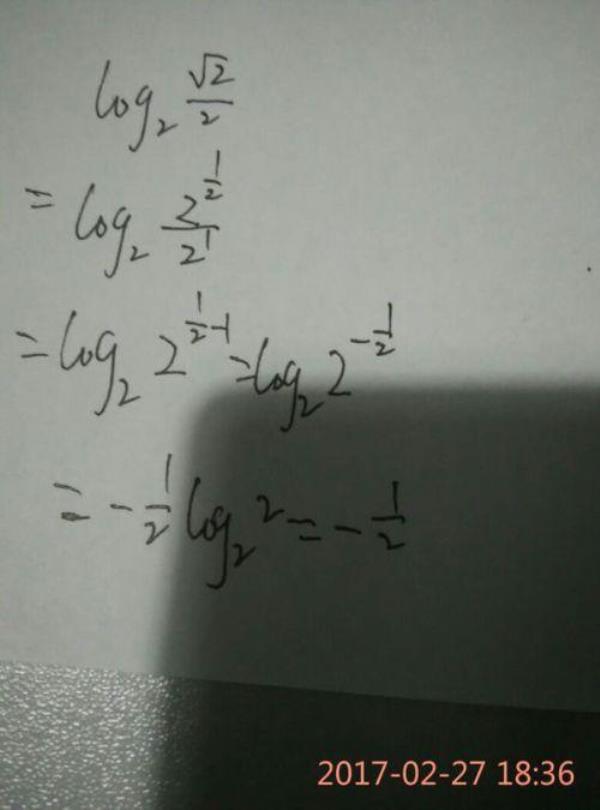 log₂ √2/2
= log₂ 2^(1/2)/2^1
= log₂ 2^(1/2-1) = log₂ 2^(-1/2)
= -1/2 log₂ 2 = -1/2
2017-02-27 18:36